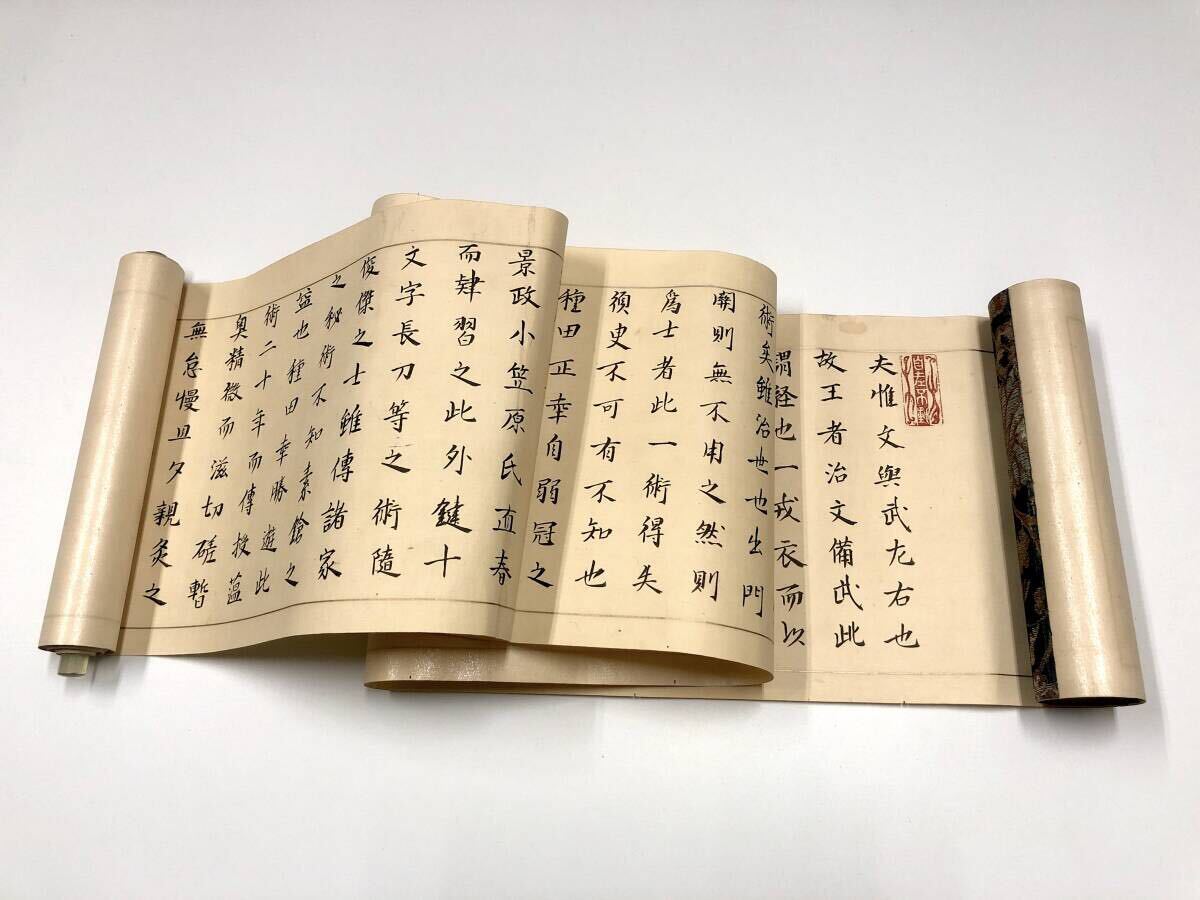 夫惟文與武尤右也
故王者治文備武此
謂経也一戎衣而以
術矣雖治世也出門
開則無不用之然則
爲士者此一術得失
須史不可有不知也
種田正幸自弱冠之
景政小笠原氏直春
而肄習之此外鍵十
文字長刀等之術隨
俊傑之士雖傳諸家
之秘術不知素鎗之
益也種田幸勝遊此
術二十年而傳授蘊
奥精微而滋切磋暫
無怠慢且夕親炙之